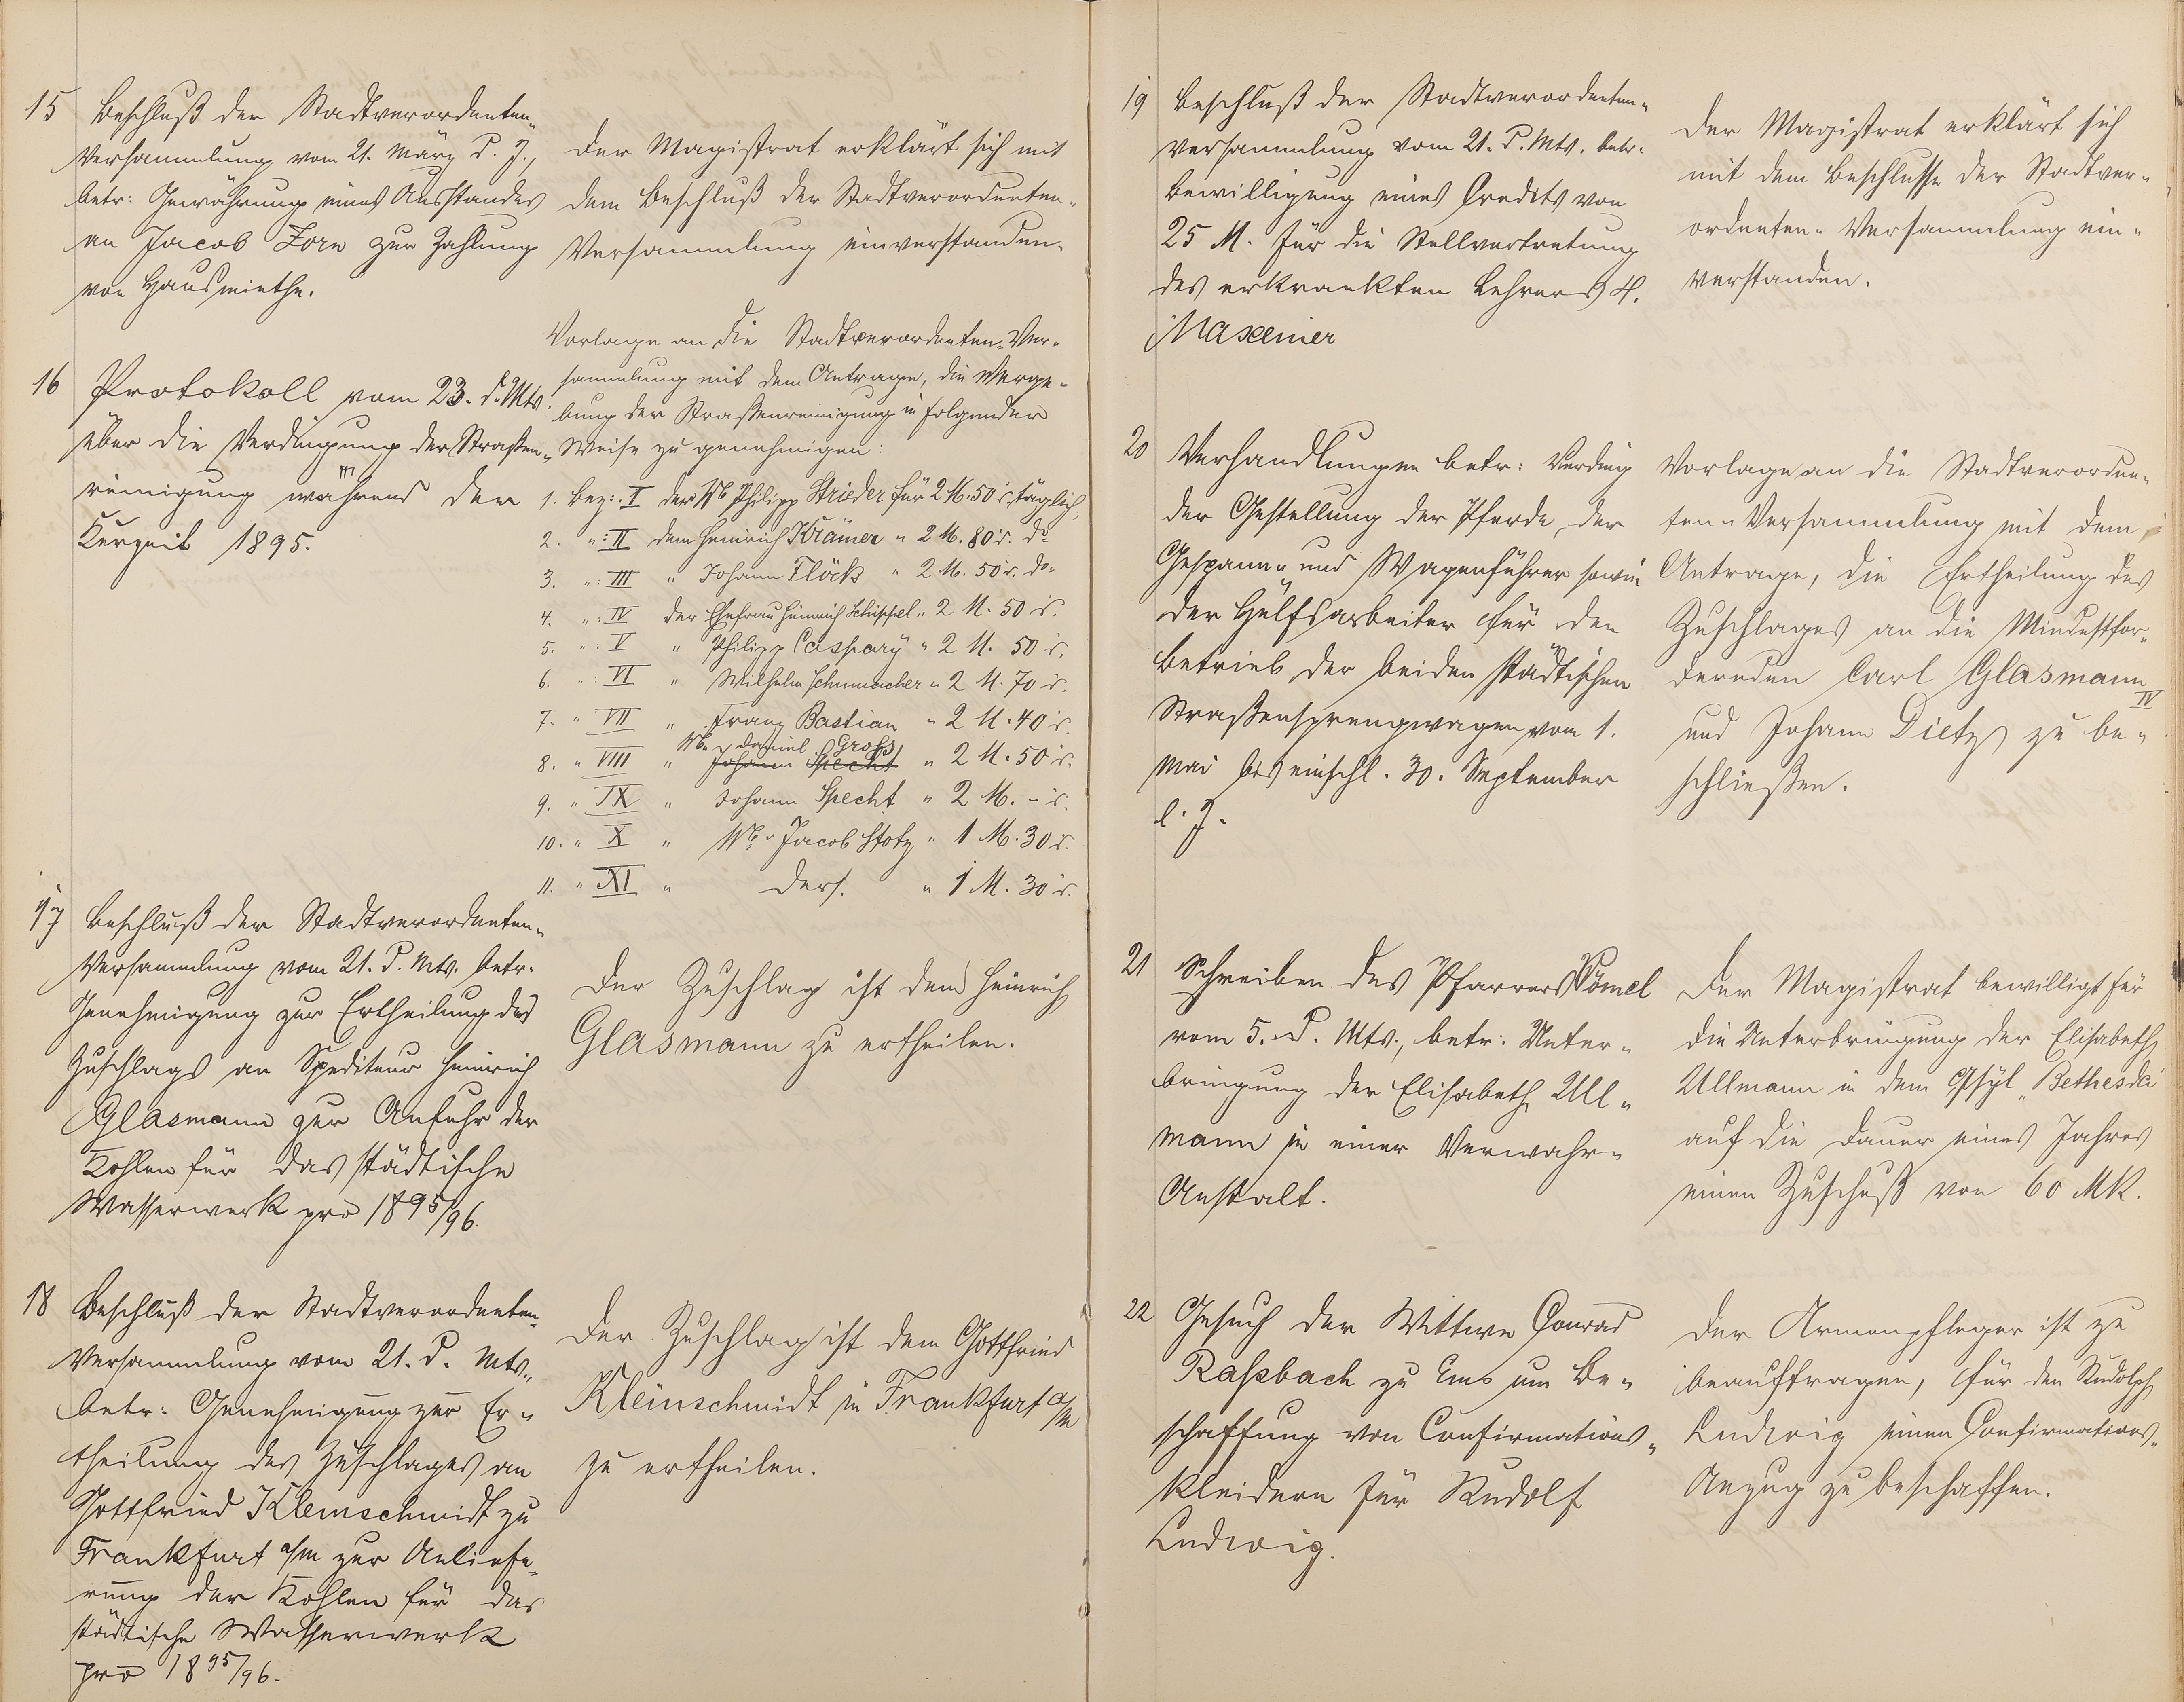 15 Beschluß der Stadtverordneten-
Versammlung vom 21. März d. J.,
betr: Gewährung eines Ausstandes
an Jacob Zorn zur Zahlung
von Hausmiethe.
Der Magistrat erklärt sich mit
dem Beschluß der Stadtverordneten-
Versammlung einverstanden.
16 Protokoll vom 23. d. Mts.
über die Verdingung der Straßen-
reinigung während der
Kurzeit 1895.
Vorlage an die Stadtverordneten-Ver-
sammlung mit dem Antrage, die Verge-
bung der Straßenreinigung in folgender
Weise zu genehmigen:
1. Bez: I der Wb Philipp Strieder für 2 M. 50 d. täglich,
2. " : II dem Heinrich Krämer " 2 M. 80 d. do
3. " : III " Johann Flöck " 2 M. 50 d. do
4. " : IV der Ehefrau Heinrich " 2 M. 50 d.
5. " : V " Philipp Caspary " 2 M. 50 d.
6. " : VI " Wilhelm Schumacher " 2 M. 70 d.
7. " VII " Franz Bastian " 2 M. 40 d.
Wb. Daniel Groß
8. " VIII " Johann Specht " 2 M. 50 d.
9. " IX " Johann Specht " 2 M. - d.
10. " X " Wb. Jacob Stotz " 1 M. 30 d.
11. " XI " ders. " 1 M. 30 d.
17 Beschluß der Stadtverordneten-
Versammlung vom 21. d. Mts. betr.
Genehmigung zur Ertheilung des
Zuschlags an Spediteur Heinrich
Glasmann zur Anfuhr der
Kohlen für das städtische
Wasserwerk pro 1895/96.
Der Zuschlag ist dem Heinrich
Glasmann zu ertheilen.
18 Beschluß der Stadtverordneten-
Versammlung vom 21. d. Mts.,
betr: Genehmigung zur Er-
theilung des Zuschlages an
Gottfried Kleinschmidt zu
Frankfurt a/M zur Anliefe-
rung der Kohlen für das
städtische Wasserwerk
pro 1895/96.
Der Zuschlag ist dem Gottfried
Kleinschmidt in Frankfurt a/M
zu ertheilen.
19 Beschluß der Stadtverordneten-
Versammlung vom 21. d. Mts. betr.
Bewilligung eines Credits von
25 M. für die Stellvertretung
des erkrankten Lehrers H.
Maxeiner
Der Magistrat erklärt sich
mit dem Beschlusse der Stadtver-
ordneten-Versammlung ein-
verstanden.
20 Verhandlungen betr: Verding
der Gestellung der Pferde, der
Gespann- und Wagenführer sowie
der Hülfsarbeiter für den
Betrieb der beiden städtischen
Straßensprengwagen vom 1.
Mai bis einschl. 30. September
l. J.
Vorlage an die Stadtverordne-
ten-Versammlung mit dem
Antrage, die Ertheilung des
Zuschlages an die Mindestfor-
dernden Carl Glasmann
und Johann Dietz IV zu be-
schließen.
21 Schreiben des Pfarrers Vömel
vom 5. d. Mts., betr: Unter-
bringung der Elisabeth Ull-
mann in einer Verwahr-
Anstalt.
Der Magistrat bewilligt für
die Unterbringung der Elisabeth
Ullmann in dem Asyl „Bethesda"
auf die Dauer eines Jahres
einen Zuschuß von 60 Mk.
22 Gesuch der Wittwe Conrad
Raßbach zu Ems um Be-
schaffung von Confirmations-
kleidern für Rudolf
Ludwig.
Der Armenpfleger ist zu
beauftragen, für den Rudolph
Ludwig einen Confirmations-
Anzug zu beschaffen.